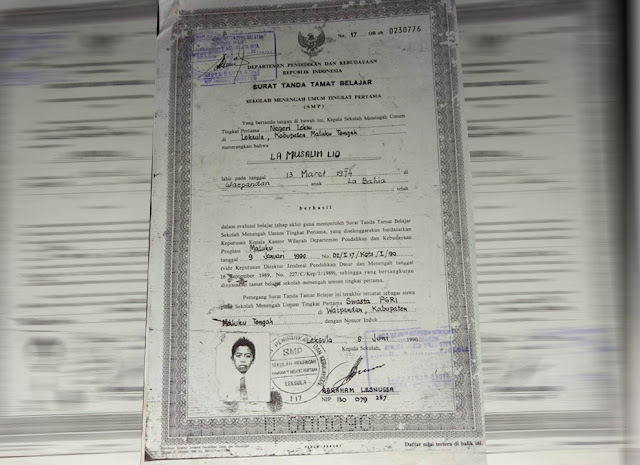 No. 17 OB oh 0230776
DEPARTEMEN PENDIDIKAN DAN KEBUDAYAAN
REPUBLIK INDONESIA
SURAT TANDA TAMAT BELAJAR
SEKOLAH MENENGAH UMUM TINGKAT PERTAMA
(SMP)
Yang bertanda tangan di bawah ini, Kepala Sekolah Menengah Umum
Tingkat Pertama Negeri
di Leksula, Kabupaten Maluku Tengah
menerangkan bahwa
LA MUSALIM LIO
lahir pada tanggal 13 Maret 1974 di
Waepandan, anak La Bahia telah
berhasil
dalam evaluasi belajar tahap akhir guna memperoleh Surat Tanda Tamat Belajar
Sekolah Menengah Umum Tingkat Pertama, yang diselenggarakan berdasarkan
Keputusan Kepala Kantor Wilayah Departemen Pendidikan dan Kebudayaan
Propinsi Maluku
tanggal 9 Januari 1990 No. 02/I 17/Kpts/I/90
(vide Keputusan Direktur Jenderal Pendidikan Dasar dan Menengah tanggal
September 1989, No. 227/C/Kep/I/1989), sehingga yang bersangkutan
dinyatakan tamat belajar sekolah menengah umum tingkat pertama.
Pemegang Surat Tanda Tamat Belajar ini terakhir tercatat sebagai siswa
pada Sekolah Menengah Umum Tingkat Pertama Swasta PGRI
di Waipandan, Kabupaten
Maluku Tengah dengan Nomor Induk
Leksula 8 Juni 1990
Kepala Sekolah,
PENDIDIKAN DAN
SMP
SEKOLAH MENENGAH
UMUM TINGKAT PERTAMA
LEKSULA
I 17
ABRAHAM LESNUSSA
NIP. 130 079 287
Daftar nilai tertera di balik ini.